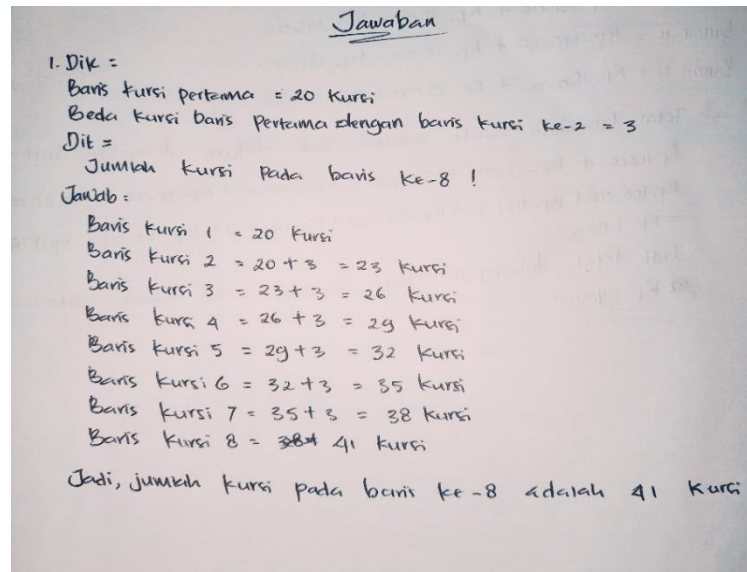 Jawaban
1. Dik =
Baris kursi pertama = 20 Kursi
Beda kursi baris pertama dengan baris kursi ke-2 = 3
Dit =
Jumlah kursi pada baris ke-8 !
Jawab :
Baris kursi 1 = 20 kursi
Baris kursi 2 = 20 + 3 = 23 kursi
Baris kursi 3 = 23 + 3 = 26 kursi
Baris kursi 4 = 26 + 3 = 29 kursi
Baris kursi 5 = 29 + 3 = 32 kursi
Baris kursi 6 = 32 + 3 = 35 kursi
Baris kursi 7 = 35 + 3 = 38 kursi
Baris kursi 8 = 41 kursi
Jadi, jumlah kursi pada baris ke-8 adalah 41 kursi